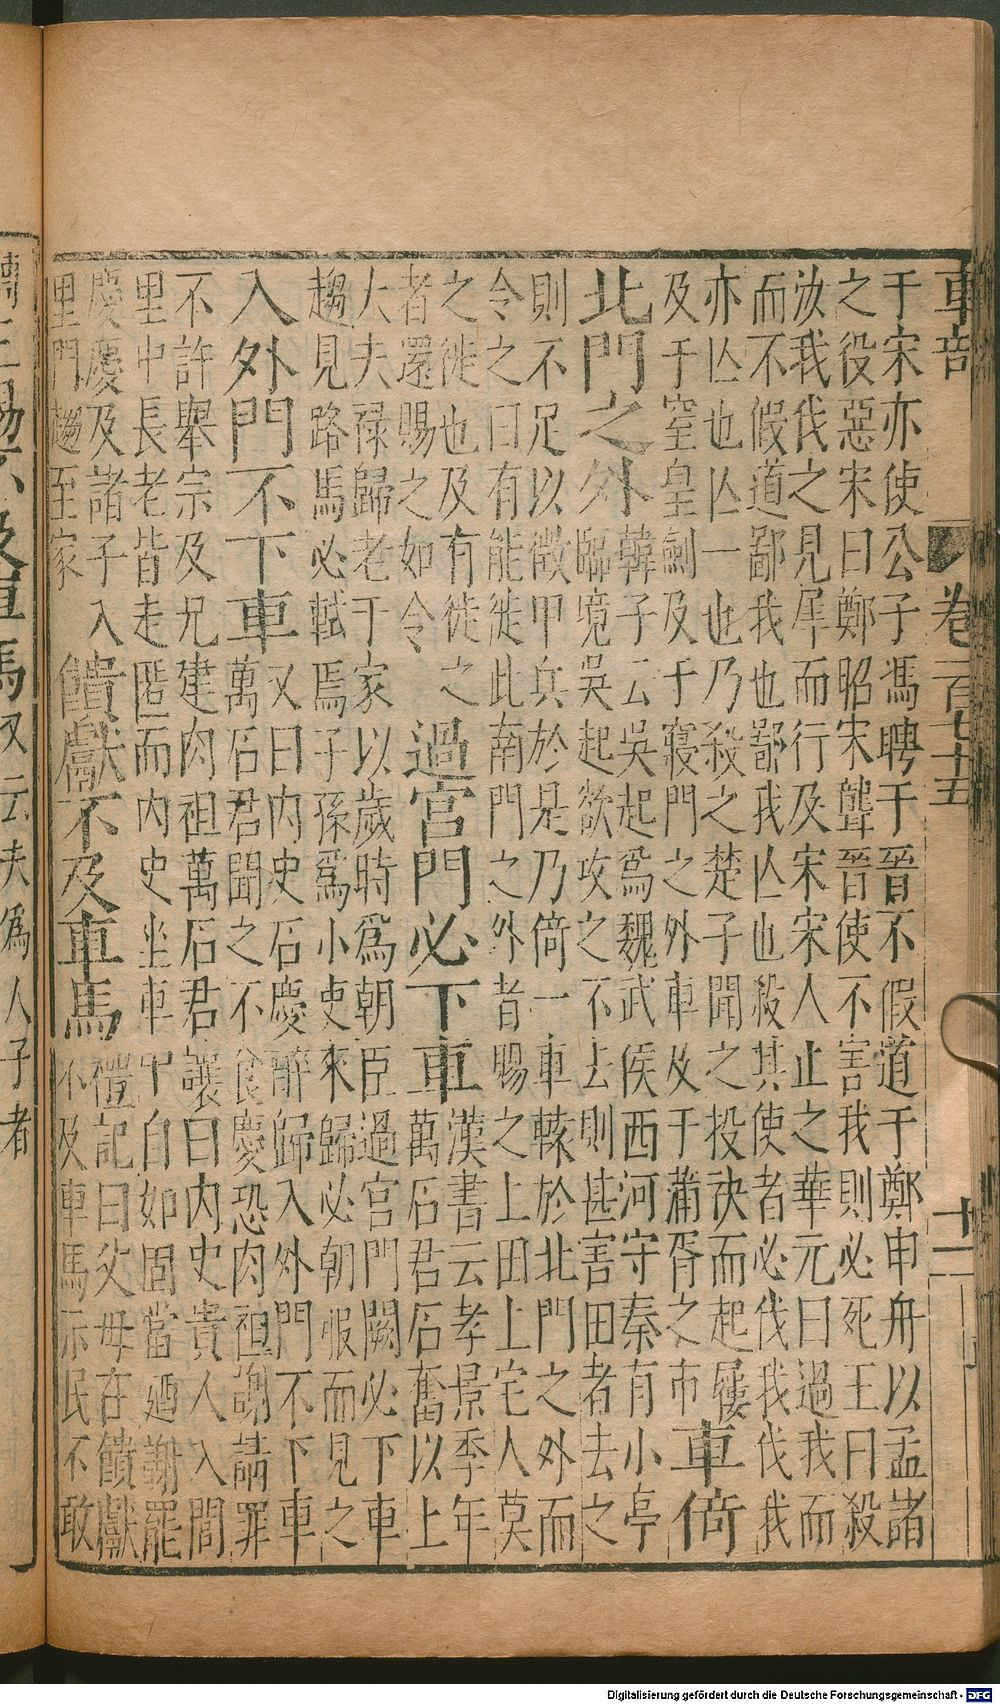 車部 卷一百七十五 十一
于宋亦使公子馮聘于晉不假道于鄭申舟以孟諸
之役惡宋曰鄭昭宋聾晉使不害我則必死王曰殺
汝我伐之見犀而行及宋宋人止之華元曰過我而
而不假道鄙我也鄙我亾也殺其使者必伐我伐我
亦亾也亾一也乃殺之楚子聞之投袂而起屨
及于窒皇劍及于寢門之外車及于蒲胥之市
車倚
北門之外
韓子云吳起爲魏武侯西河守秦有小亭
臨境吳起欲攻之不去則甚害田者去之
則不足以徵甲兵於是乃倚一車轅於北門之外而
令之曰有能徙此南門之外者賜之上田上宅人莫
之徙也及有徙之
者還賜之如令
過宮門必下車
漢書云孝景季年
萬石君石奮以上
大夫祿歸老于家以歲時爲朝臣過宮門闕必下車
趨見路馬必軾焉子孫爲小吏來歸必朝服而見之
入外門不下車
又曰內史石慶醉歸入外門不下車
萬石君聞之不食慶恐肉袒謝請罪
不許舉宗及兄建肉袒萬石君讓曰內史貴人入閭
里中長老皆走匿而內史坐車中自如固當廼謝罷
慶慶及諸子入
里門趨至家
饋獻不及車馬
禮記曰父母在饋獻
不及車馬示民不敢
及車馬又云夫爲人子者
Digitalisierung gefördert durch die Deutsche Forschungsgemeinschaft - DFG